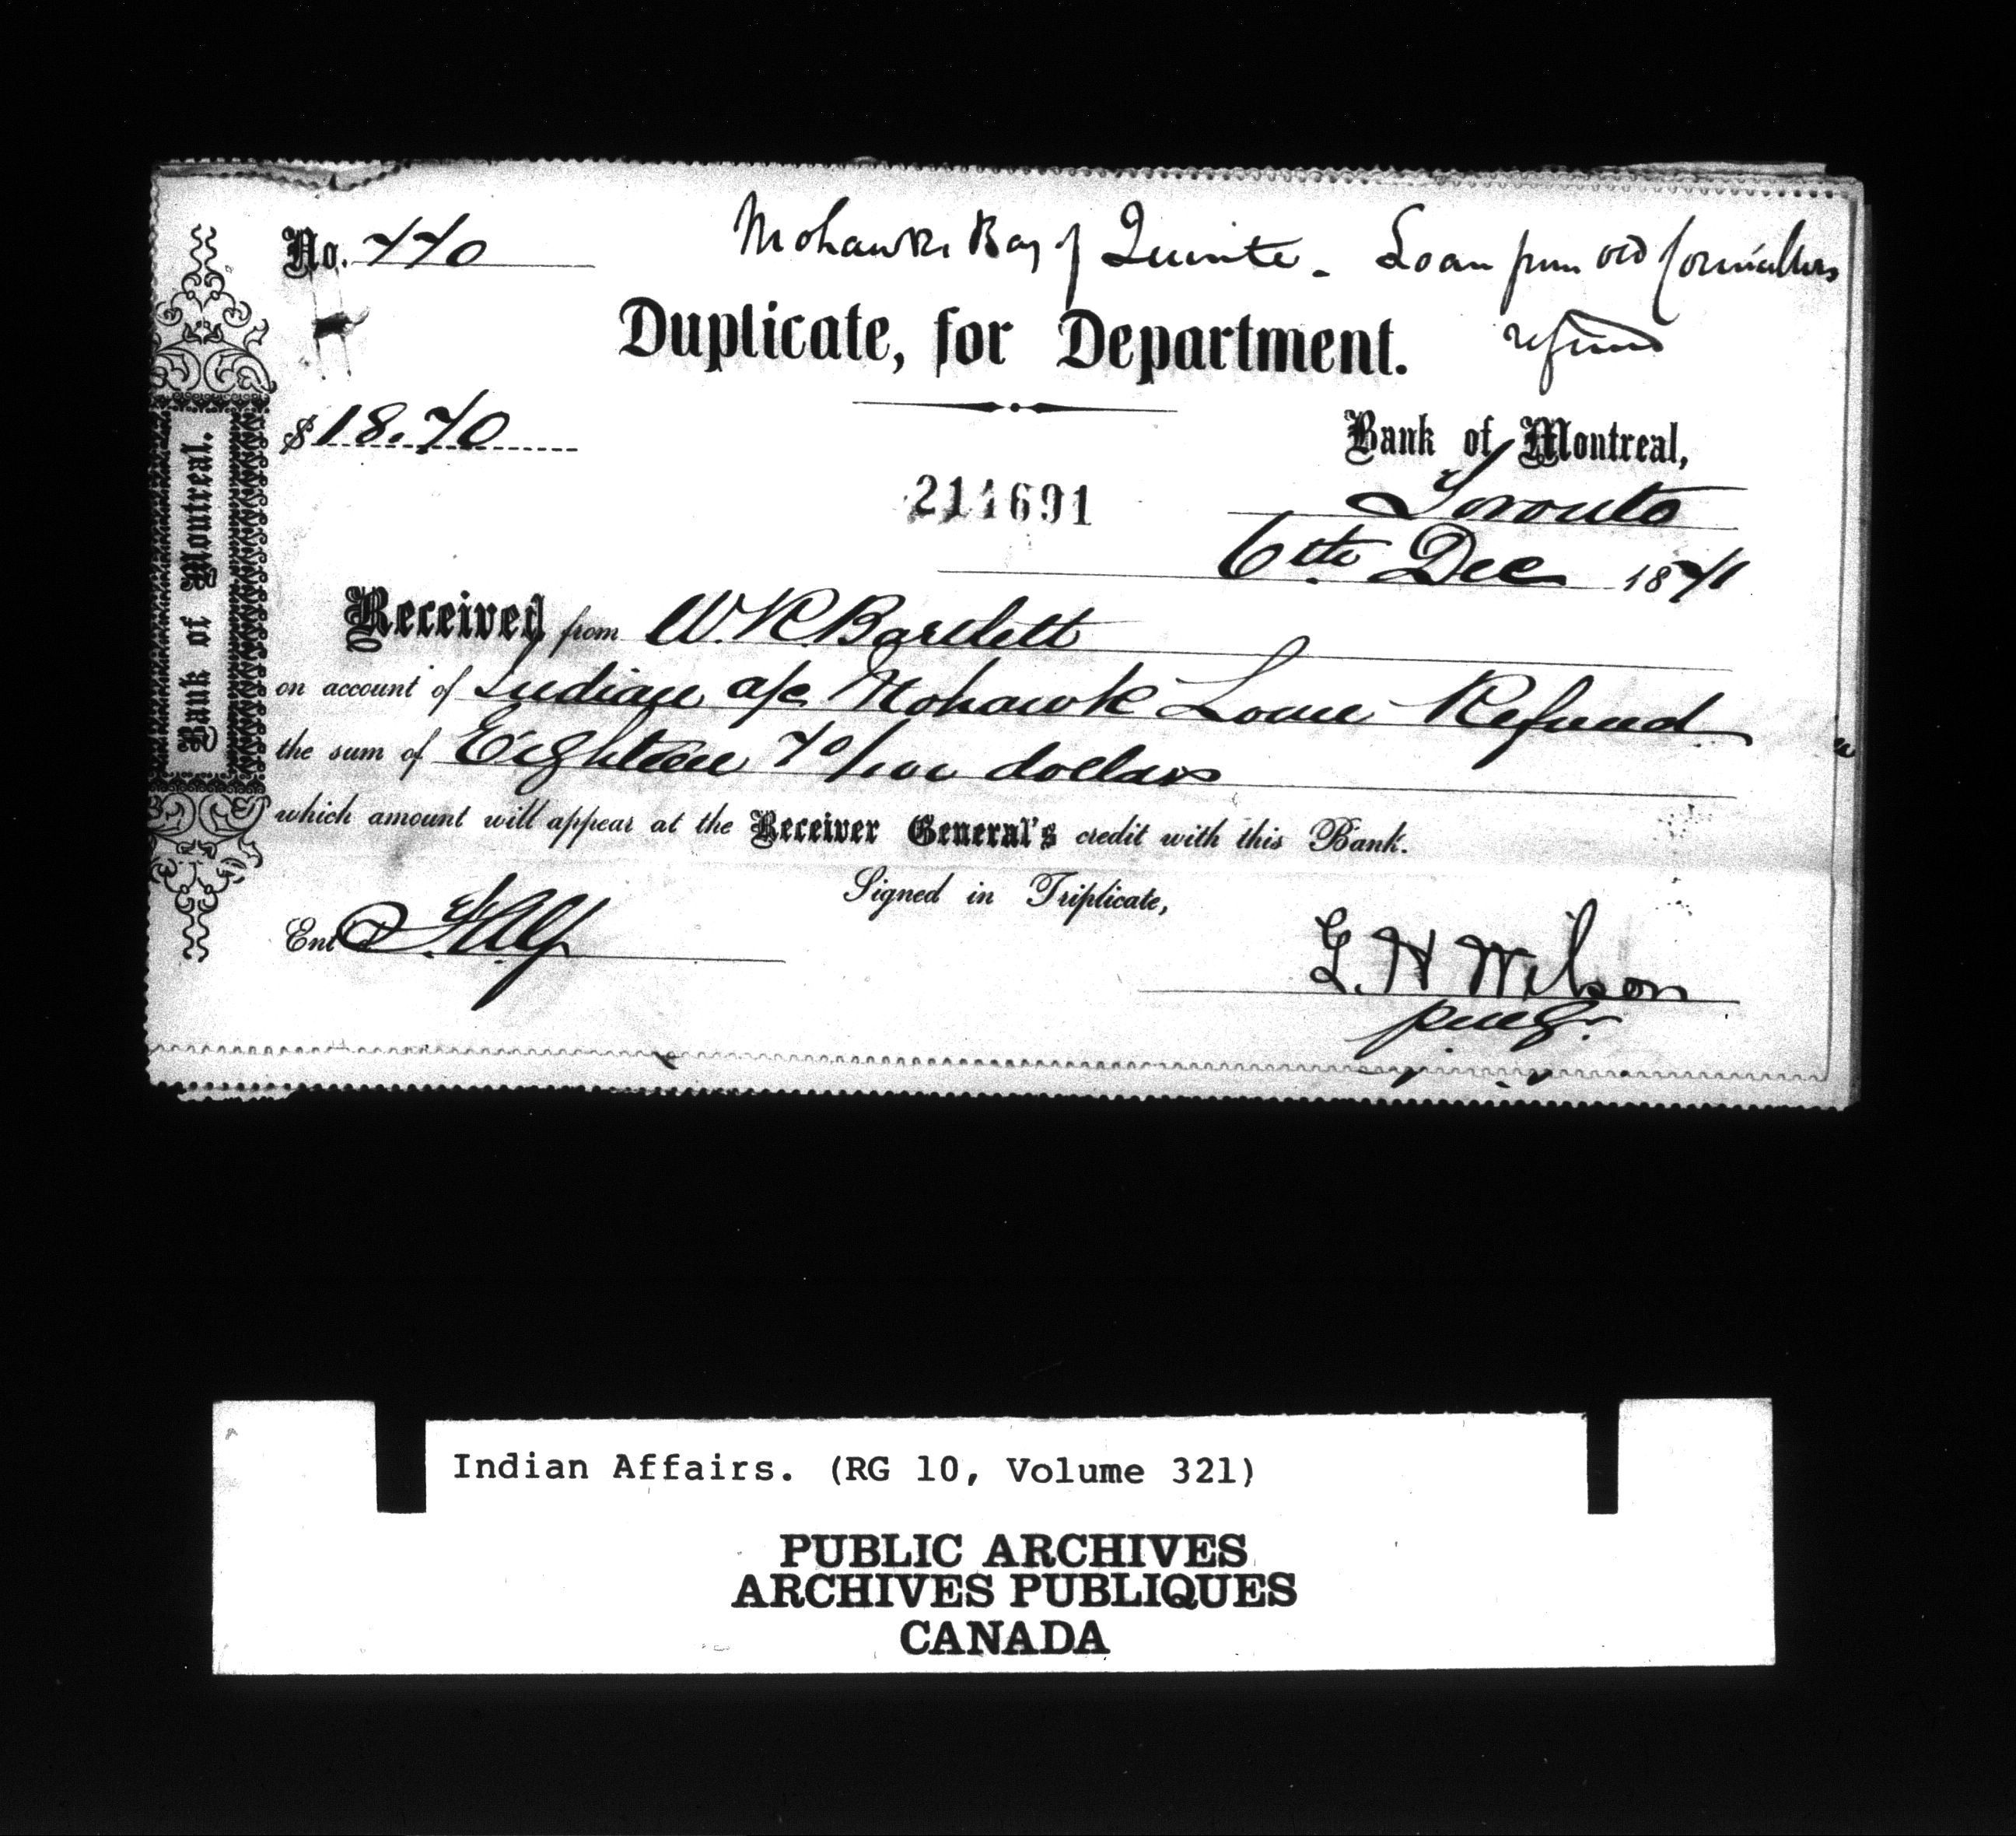 No. 770
Mohawks Bay of Quinte. Loan from old
refund
Duplicate, for Department.
$18.70
Bank of Montreal,
211691
Toronto
6th Dec 1871
Received from W.R. Bartlett
on account of Indian a/c Mohawk Loan Refund
the sum of Eighteen 70/100 dollars
which amount will appear at the Receiver General's credit with this Bank.
Signed in Triplicate,
Ent'd
G. H Wilson
Bank of Montreal.
Indian Affairs. (RG 10, Volume 321)
PUBLIC ARCHIVES
ARCHIVES PUBLIQUES
CANADA